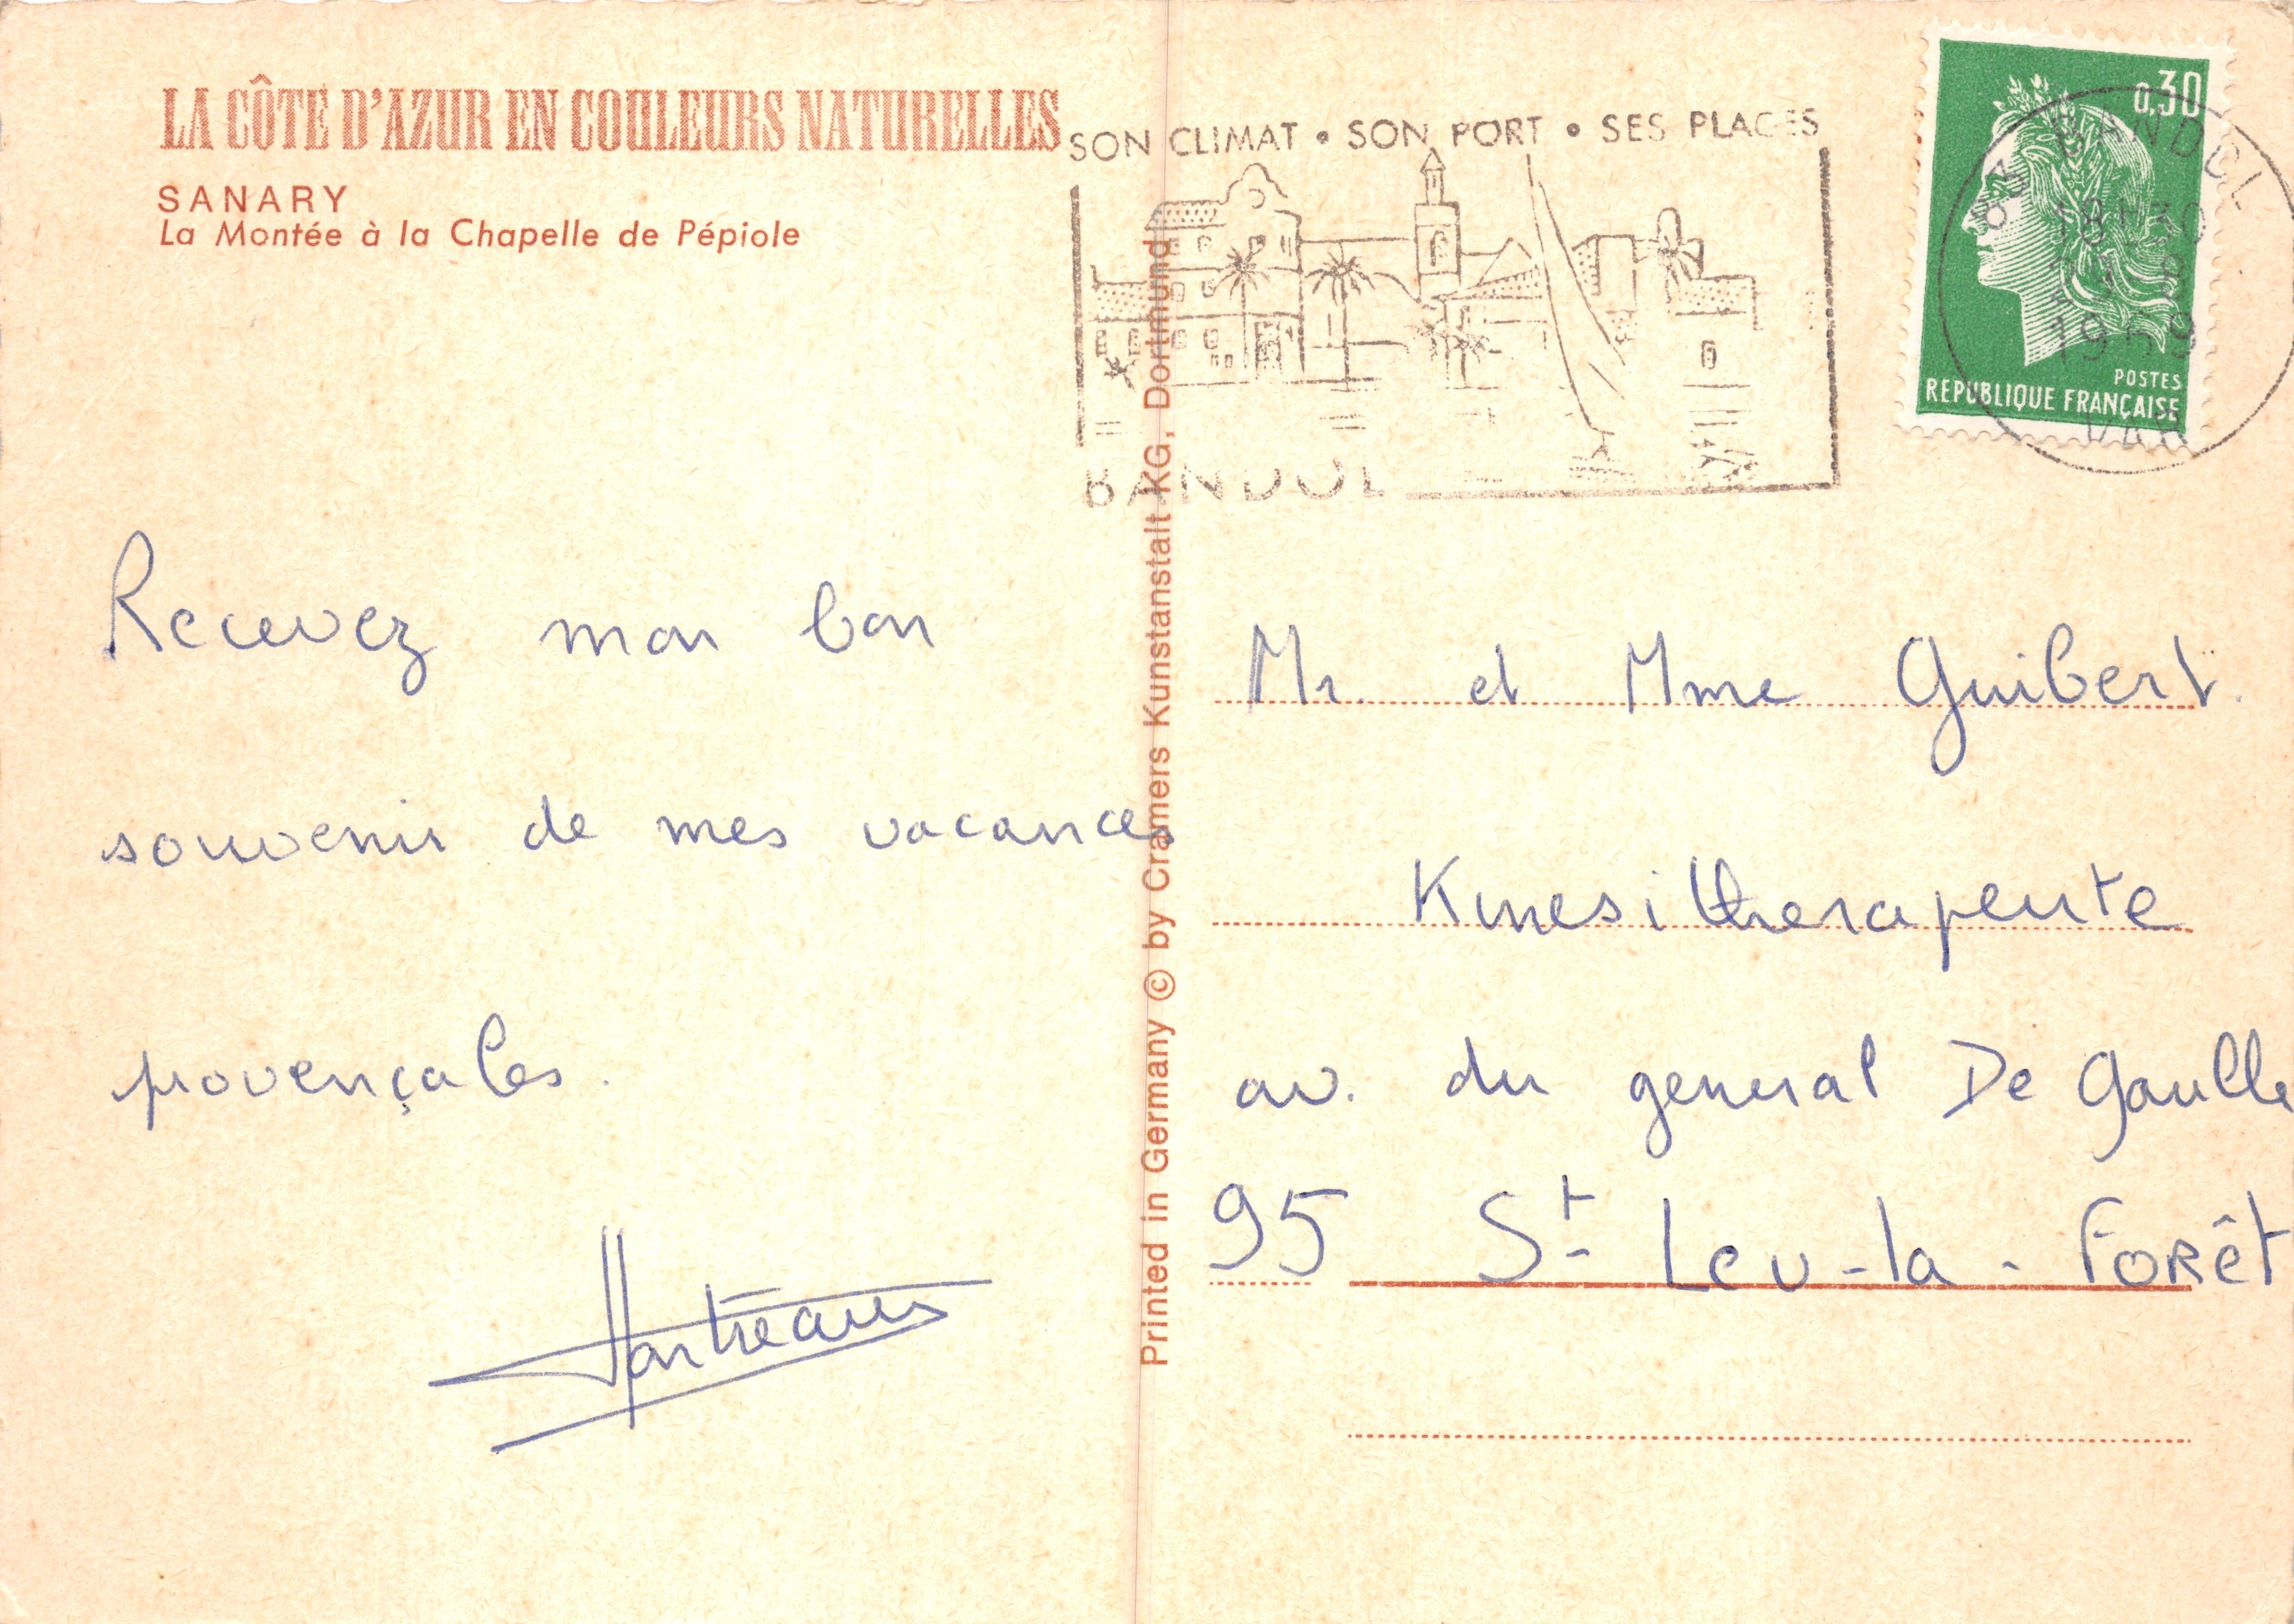 LA CÔTE D'AZUR EN COULEURS NATURELLES
SANARY
La Montée à la Chapelle de Pépiole
SON CLIMAT • SON PORT • SES PLAGES
BANDOL
0,30
83 BANDOL
18H30
1969
VAR
POSTES
REPUBLIQUE FRANÇAISE
Recevez mon bon
souvenir de mes vacances
provençales.
Printed in Germany © by Cramers Kunstanstalt KG, Dortmund
Mr. et Mme Guibert.
Kinesitherapeute
av. du general De Gaulle
95 St- Leu-la-Forêt